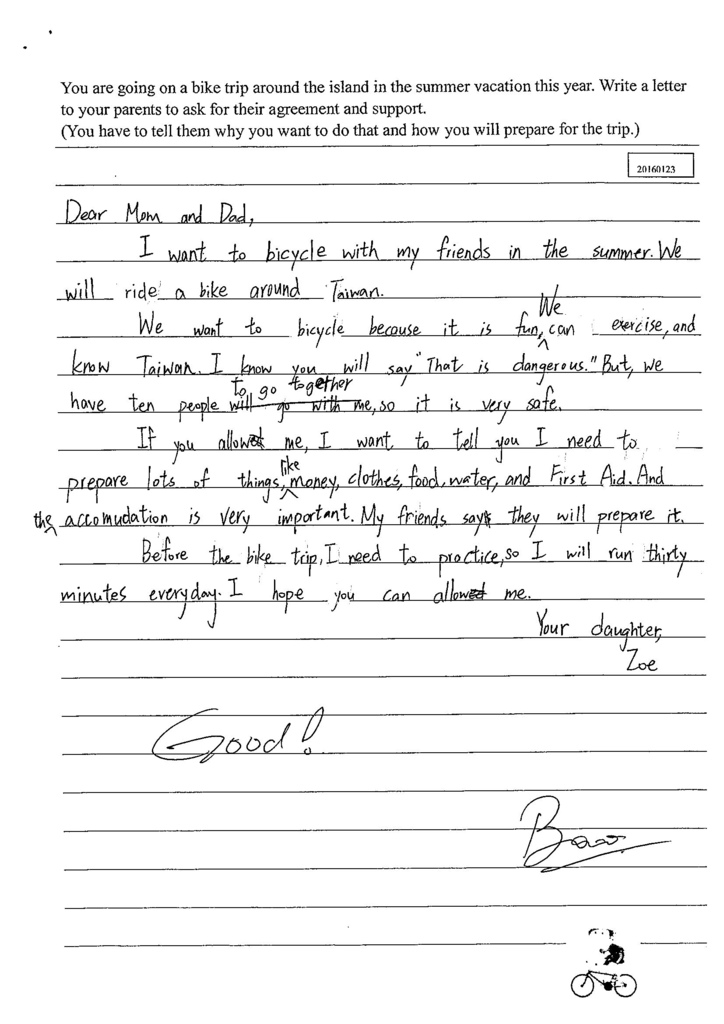 You are going on a bike trip around the island in the summer vacation this year. Write a letter
to your parents to ask for their agreement and support.
(You have to tell them why you want to do that and how you will prepare for the trip.)
20160123
Dear Mom and Dad,
I want to bicycle with my friends in the summer. We
will ride a bike around Taiwan.
We
We want to bicycle because it is fun, can exercise, and
know Taiwan. I know you will say "That is dangerous." But, we
to go together
have ten people will go with me, so it is very safe.
If you allowed me, I want to tell you I need to
like
prepare lots of things, money, clothes, food, water, and First Aid. And
the accomudation is very important. My friends says they will prepare it.
Before the bike trip, I need to practice, so I will run thirty
minutes everyday. I hope you can allowed me.
Your daughter,
Zoe
Good!